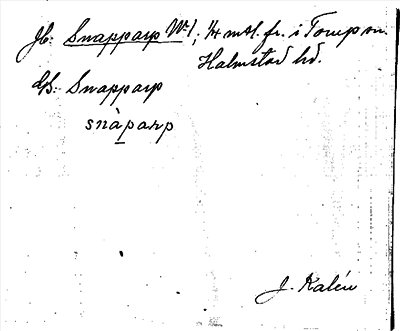 Jb: Snapparp No 1, 1/4 mtl. fr. i Torup sn.
Halmstad hd.
Gb: Snapparp
snàparp
J. Kalén